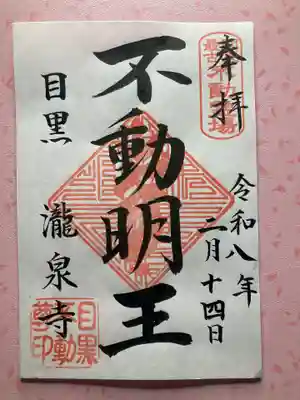 奉拝
令和八年
二月十四日
不動明王
目黒 瀧泉寺
目黒
不動
尊印